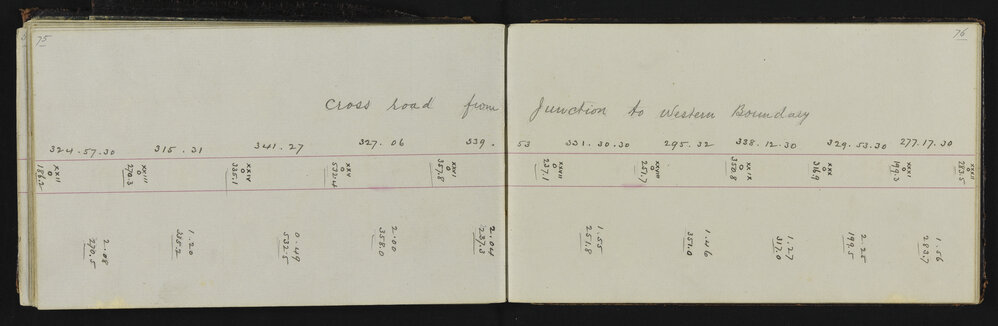 75
76
Cross road from Junction to Western Boundary
324.57.30 315.31 341.27 327.06 339.53 331.30.30 295.32 338.12.30 329.53.30 277.17.30
XXII
0
186.2
XXIII
0
270.3
XXIV
0
335.1
XXV
0
532.4
XXVI
0
357.8
XXVII
0
237.1
XXVIII
0
251.7
XXIX
0
350.8
XXX
0
316.9
XXXI
0
199.3
XXXII
0
283.5
2.08
270.5
1.20
335.2
0.49
532.5
2.00
358.0
2.04
237.3
1.55
251.8
1.46
351.0
1.27
317.0
2.25
199.5
1.56
283.7